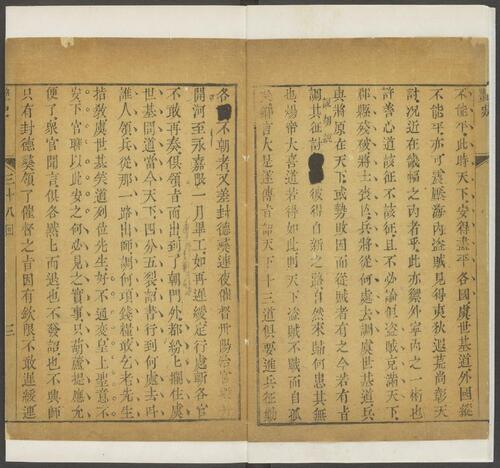 不能平此時天下安得盡平各國虞世基道外國縱
不能平亦可震壓海內盜賊見得夷狄遐荒尚彰天
討况近在畿輔之內者乎此亦禦外寧內之一術也
許善心道該征不該征且不必論但盜賊充滿天下
郡縣殘破將士喪亡兵將從何處去調虞世基道兵
與將原在天下或勢敗因而從賊者有之今若有旨
調其征討彼得自新之路自然來歸何患其無
也煬帝大喜道若得如此則天下盜賊不戰而自孤
言大是遂傳旨諭天下十三道俱要進兵征勦
各不朝者又差封德彝連夜催督丹陽治宮
開河至永嘉限一月畢工如再遲緩定行處斬各官
不敢再奏俱領旨而出到了朝門外都紛上攔住虞
世基問道當今天下四分五裂詔書行到何處去叫
誰人領兵從那一路出師調何項錢糧敢乞老先生
指教虞世基笑道列位先生好不通變皇上聖意不
安下官聊以此安之何必見之實事只葫蘆提應允
便了衆官聞言俱各嘿上而退也不發詔也不興師
只有封德彝領了催督之旨因有欽限不敢遲緩連
三十八囘
三